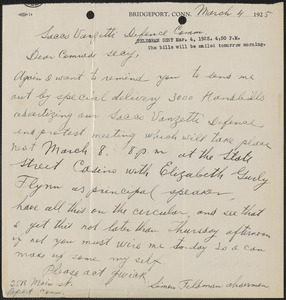 BRIDGEPORT, CONN. March 4 1925
Sacco Vanzetti Defence Comm.
TELEGRAM SENT Mar. 4, 1925. 4;50 P.M.
The bills will be mailed tomorrow morning.
Dear Comrade Secy.
Again I want to remind you to send me
out by special delivery 3000 Handbills
advertizing our Sacco Vanzetti Defence,
and protest meeting which will take place
March 8. 8 p.m. at the State
Street Casino with Elizabeth Gurly
Flynn as principal speaker,
have all this on the circular, and see that
I get this not later than Thursday afternoon
if not you must wire me today so I can
make up some my self.
Please act quick
Simon Feldman chairman
Main st.
Bport Conn.